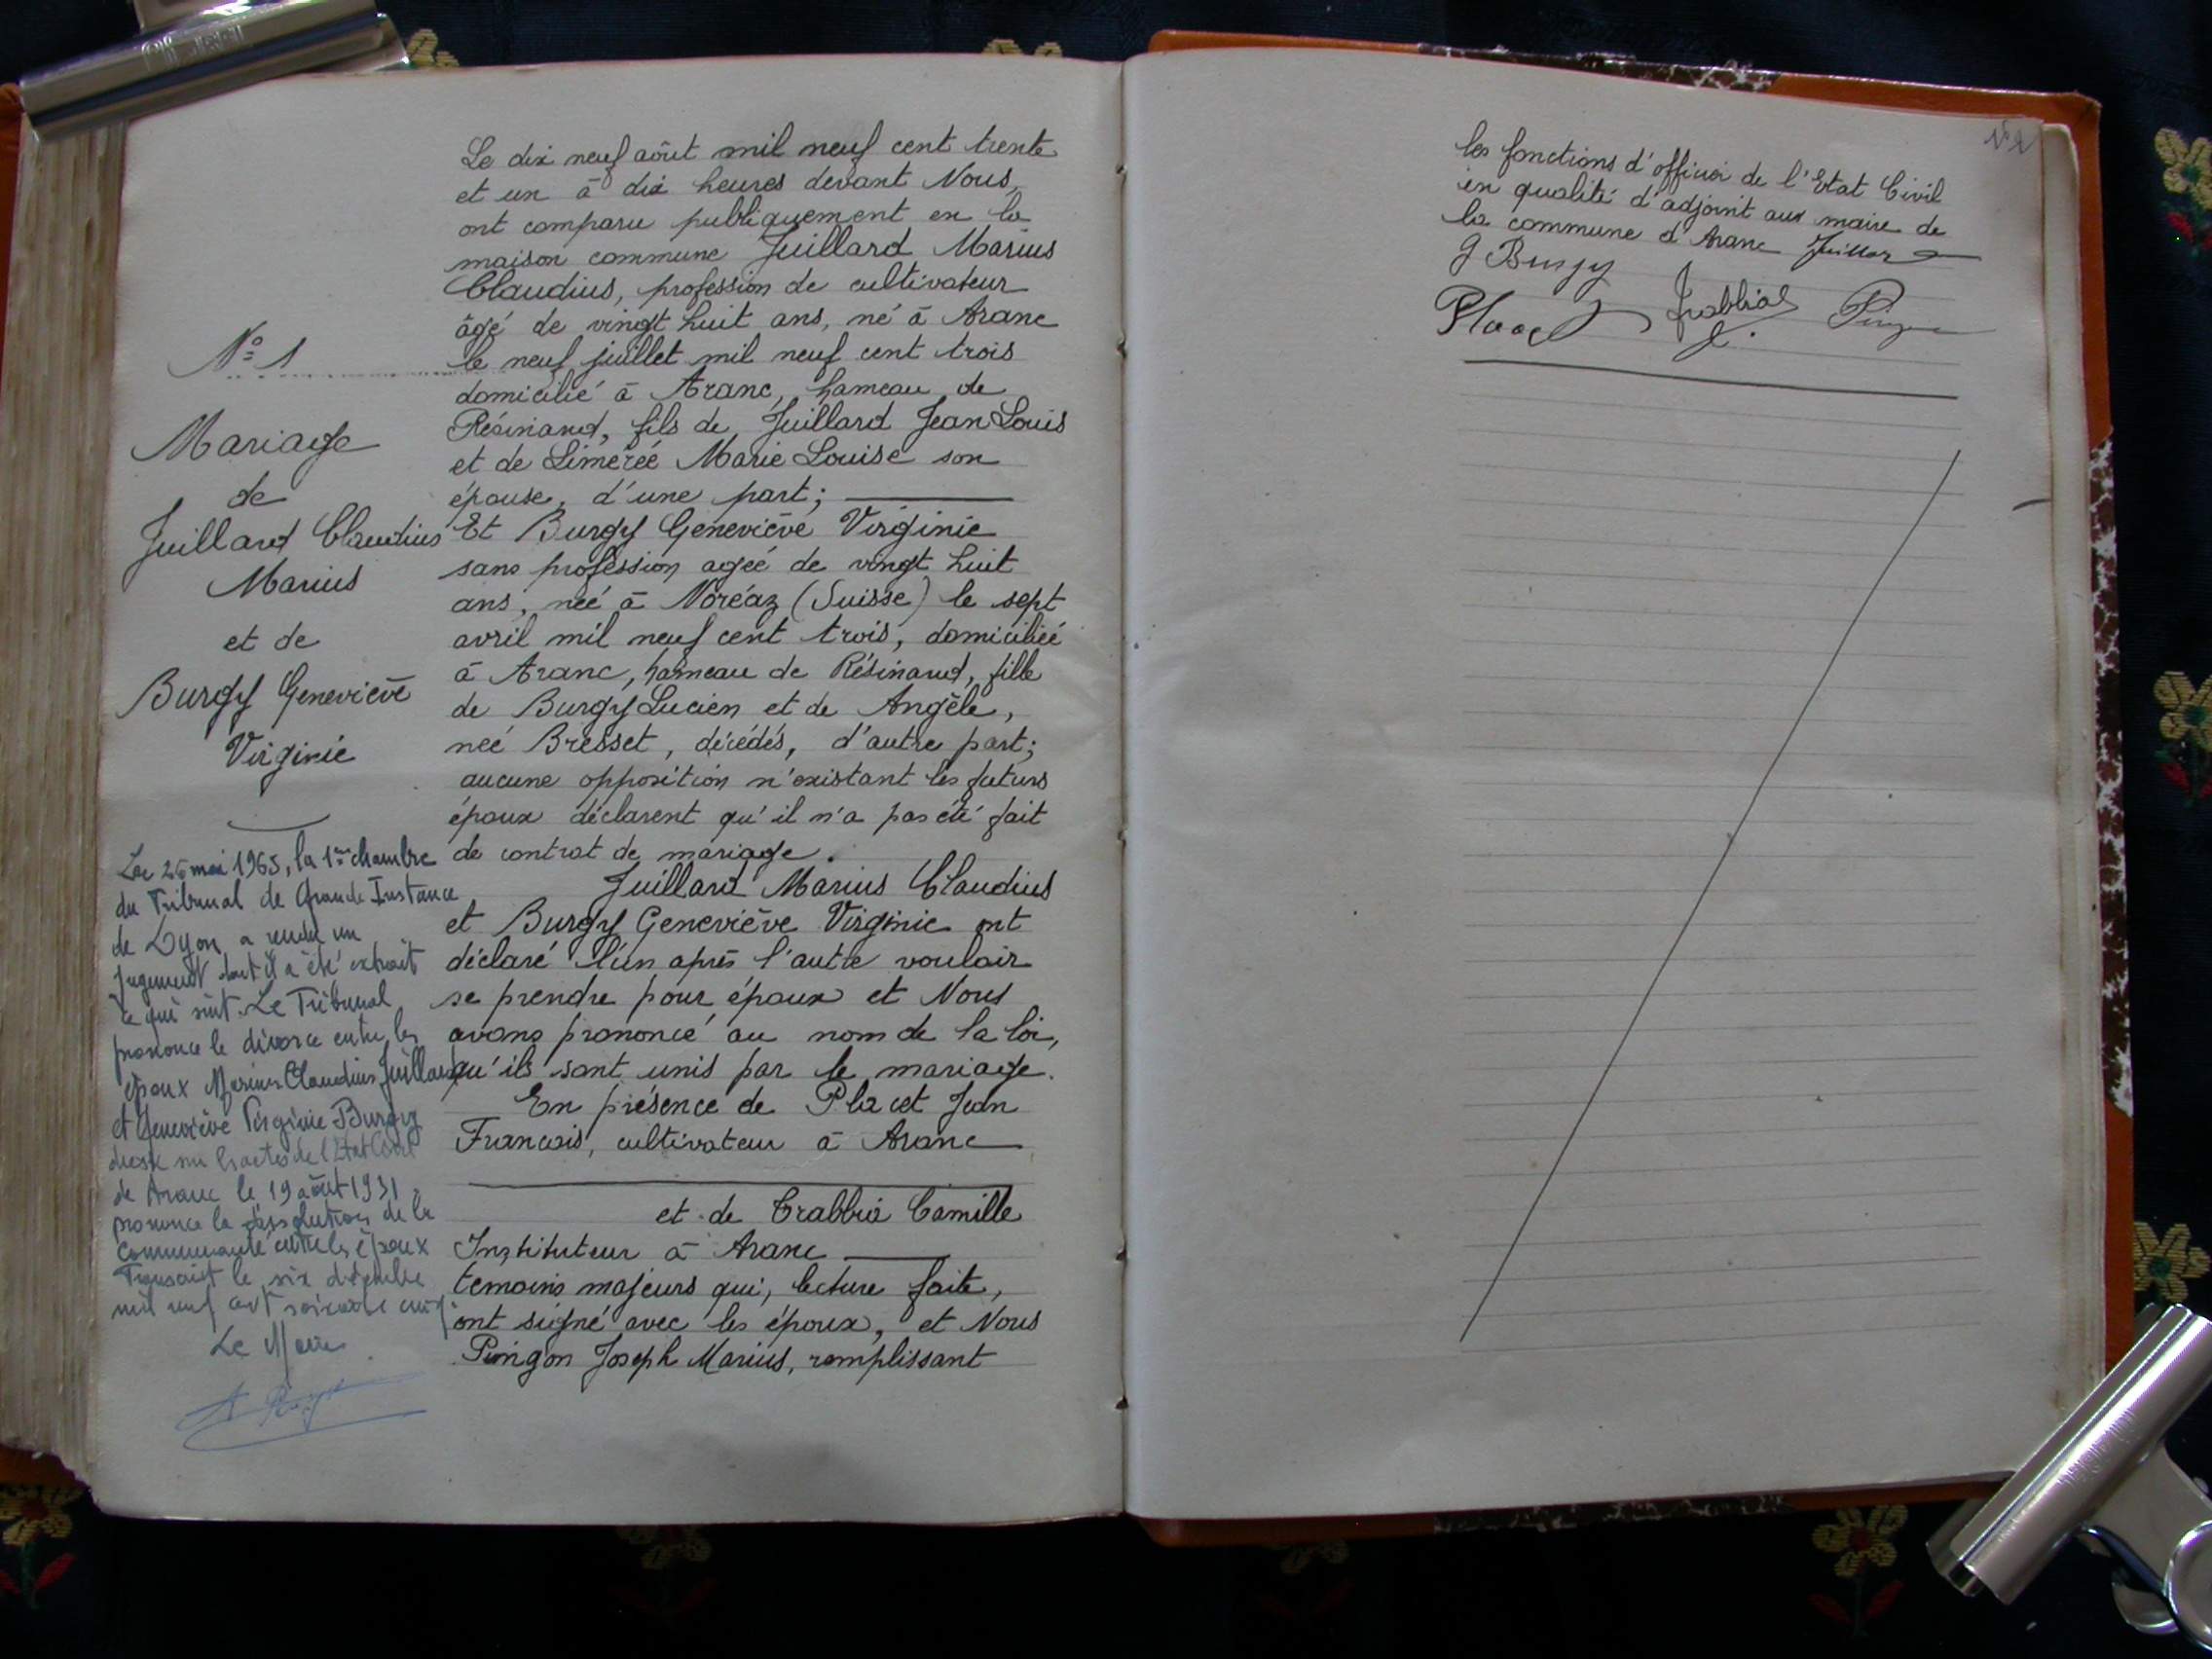 N° 1
Mariage
de
Juillard Claudius
Marius
et de
Burgy Geneviève
Virginie
Le 26 mai 1965, la 1ère chambre
du Tribunal de Grande Instance
de Lyon, a rendu un
jugement dont il a été extrait
ce qui suit. Le Tribunal
prononce le divorce entre les
époux Marius Claudius Juillard
et Geneviève Virginie Burgy
dressé sur les actes de l'Etat Civil
de Aranc le 19 août 1931
prononce la dissolution de la
communauté entre les époux
Transcrit le six décembre
mil neuf cent soixante cinq.
Le Maire
Le dix neuf août mil neuf cent trente
et un à dix heures devant Nous,
ont comparu publiquement en la
maison commune Juillard Marius
Claudius, profession de cultivateur
âgé de vingt huit ans, né à Aranc
le neuf juillet mil neuf cent trois
domicilié à Aranc, hameau de
Résinand, fils de Juillard Jean Louis
et de Limérée Marie Louise son
épouse, d'une part;
Et Burgy Geneviève Virginie
sans profession agée de vingt huit
ans, née à Noréaz (Suisse) le sept
avril mil neuf cent trois, domiciliée
à Aranc, hameau de Résinand, fille
de Burgy Lucien et de Angèle,
neé Bresset, décédés, d'autre part;
aucune opposition n'existant les futurs
époux déclarent qu'il n'a pas été fait
de contrat de mariage.
Juillard Marius Claudius
et Burgy Geneviève Virginie ont
déclaré l'un après l'autre vouloir
se prendre pour époux et Nous
avons prononcé au nom de la loi,
qu'ils sont unis par le mariage.
En présence de Placet Jean
Francois, cultivateur à Aranc
et de Trabbia Camille
Instituteur à Aranc
temoins majeurs qui, lecture faite,
ont signé avec les époux, et Nous
Pingon Joseph Marius, remplissant
les fonctions d'officier de l'Etat Civil
en qualité d'adjoint aux maire de
la commune d'Aranc Juillard
G Burgy
Placet Trabbia Pingon